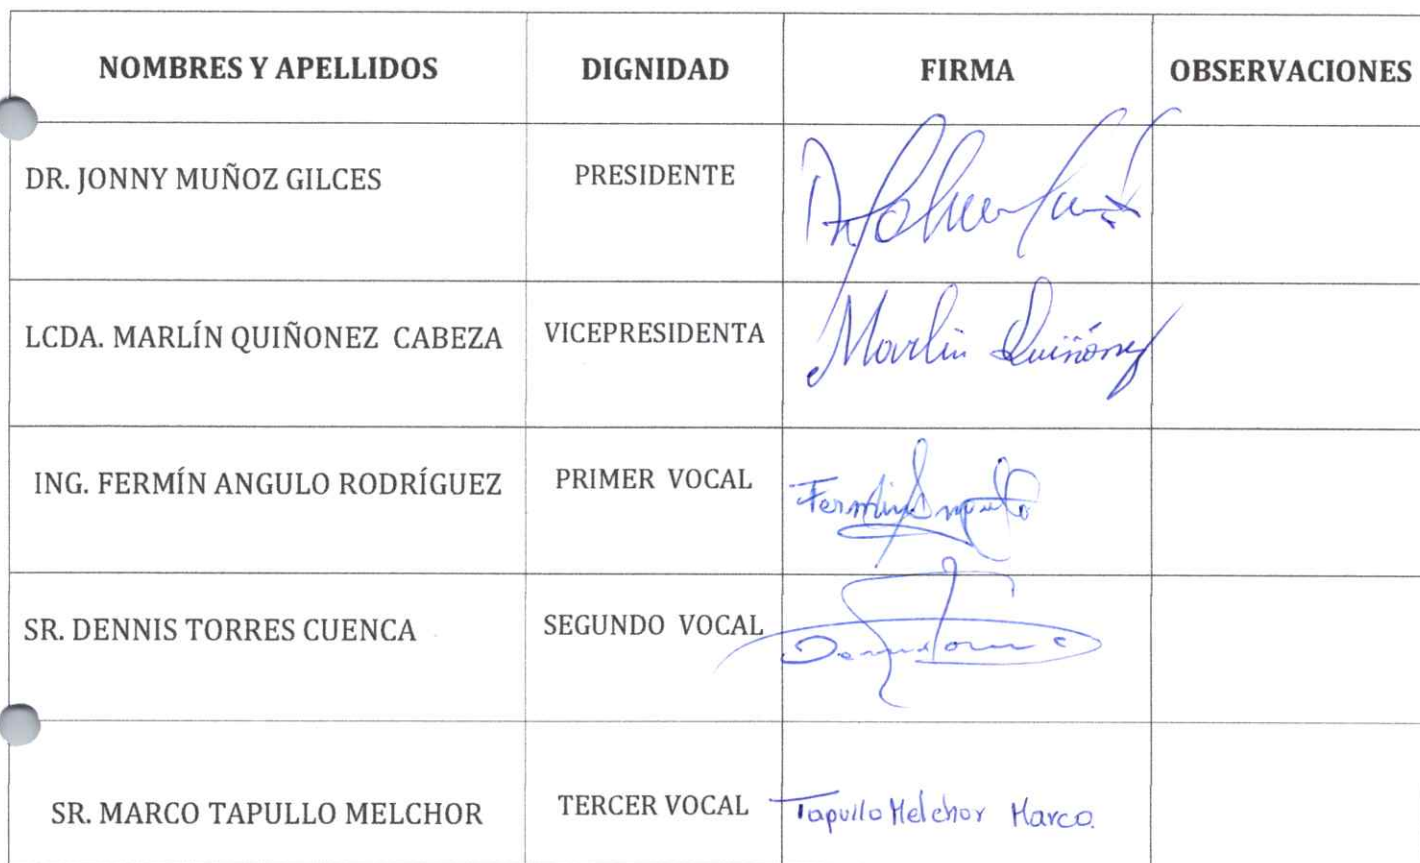 NOMBRES Y APELLIDOS DIGNIDAD FIRMA OBSERVACIONES
DR. JONNY MUÑOZ GILCES PRESIDENTE
LCDA. MARLÍN QUIÑONEZ CABEZA VICEPRESIDENTA Marlin Quiñónez
ING. FERMÍN ANGULO RODRÍGUEZ PRIMER VOCAL Fermín Angulo
SR. DENNIS TORRES CUENCA SEGUNDO VOCAL
SR. MARCO TAPULLO MELCHOR TERCER VOCAL Tapullo Melchor Marco.